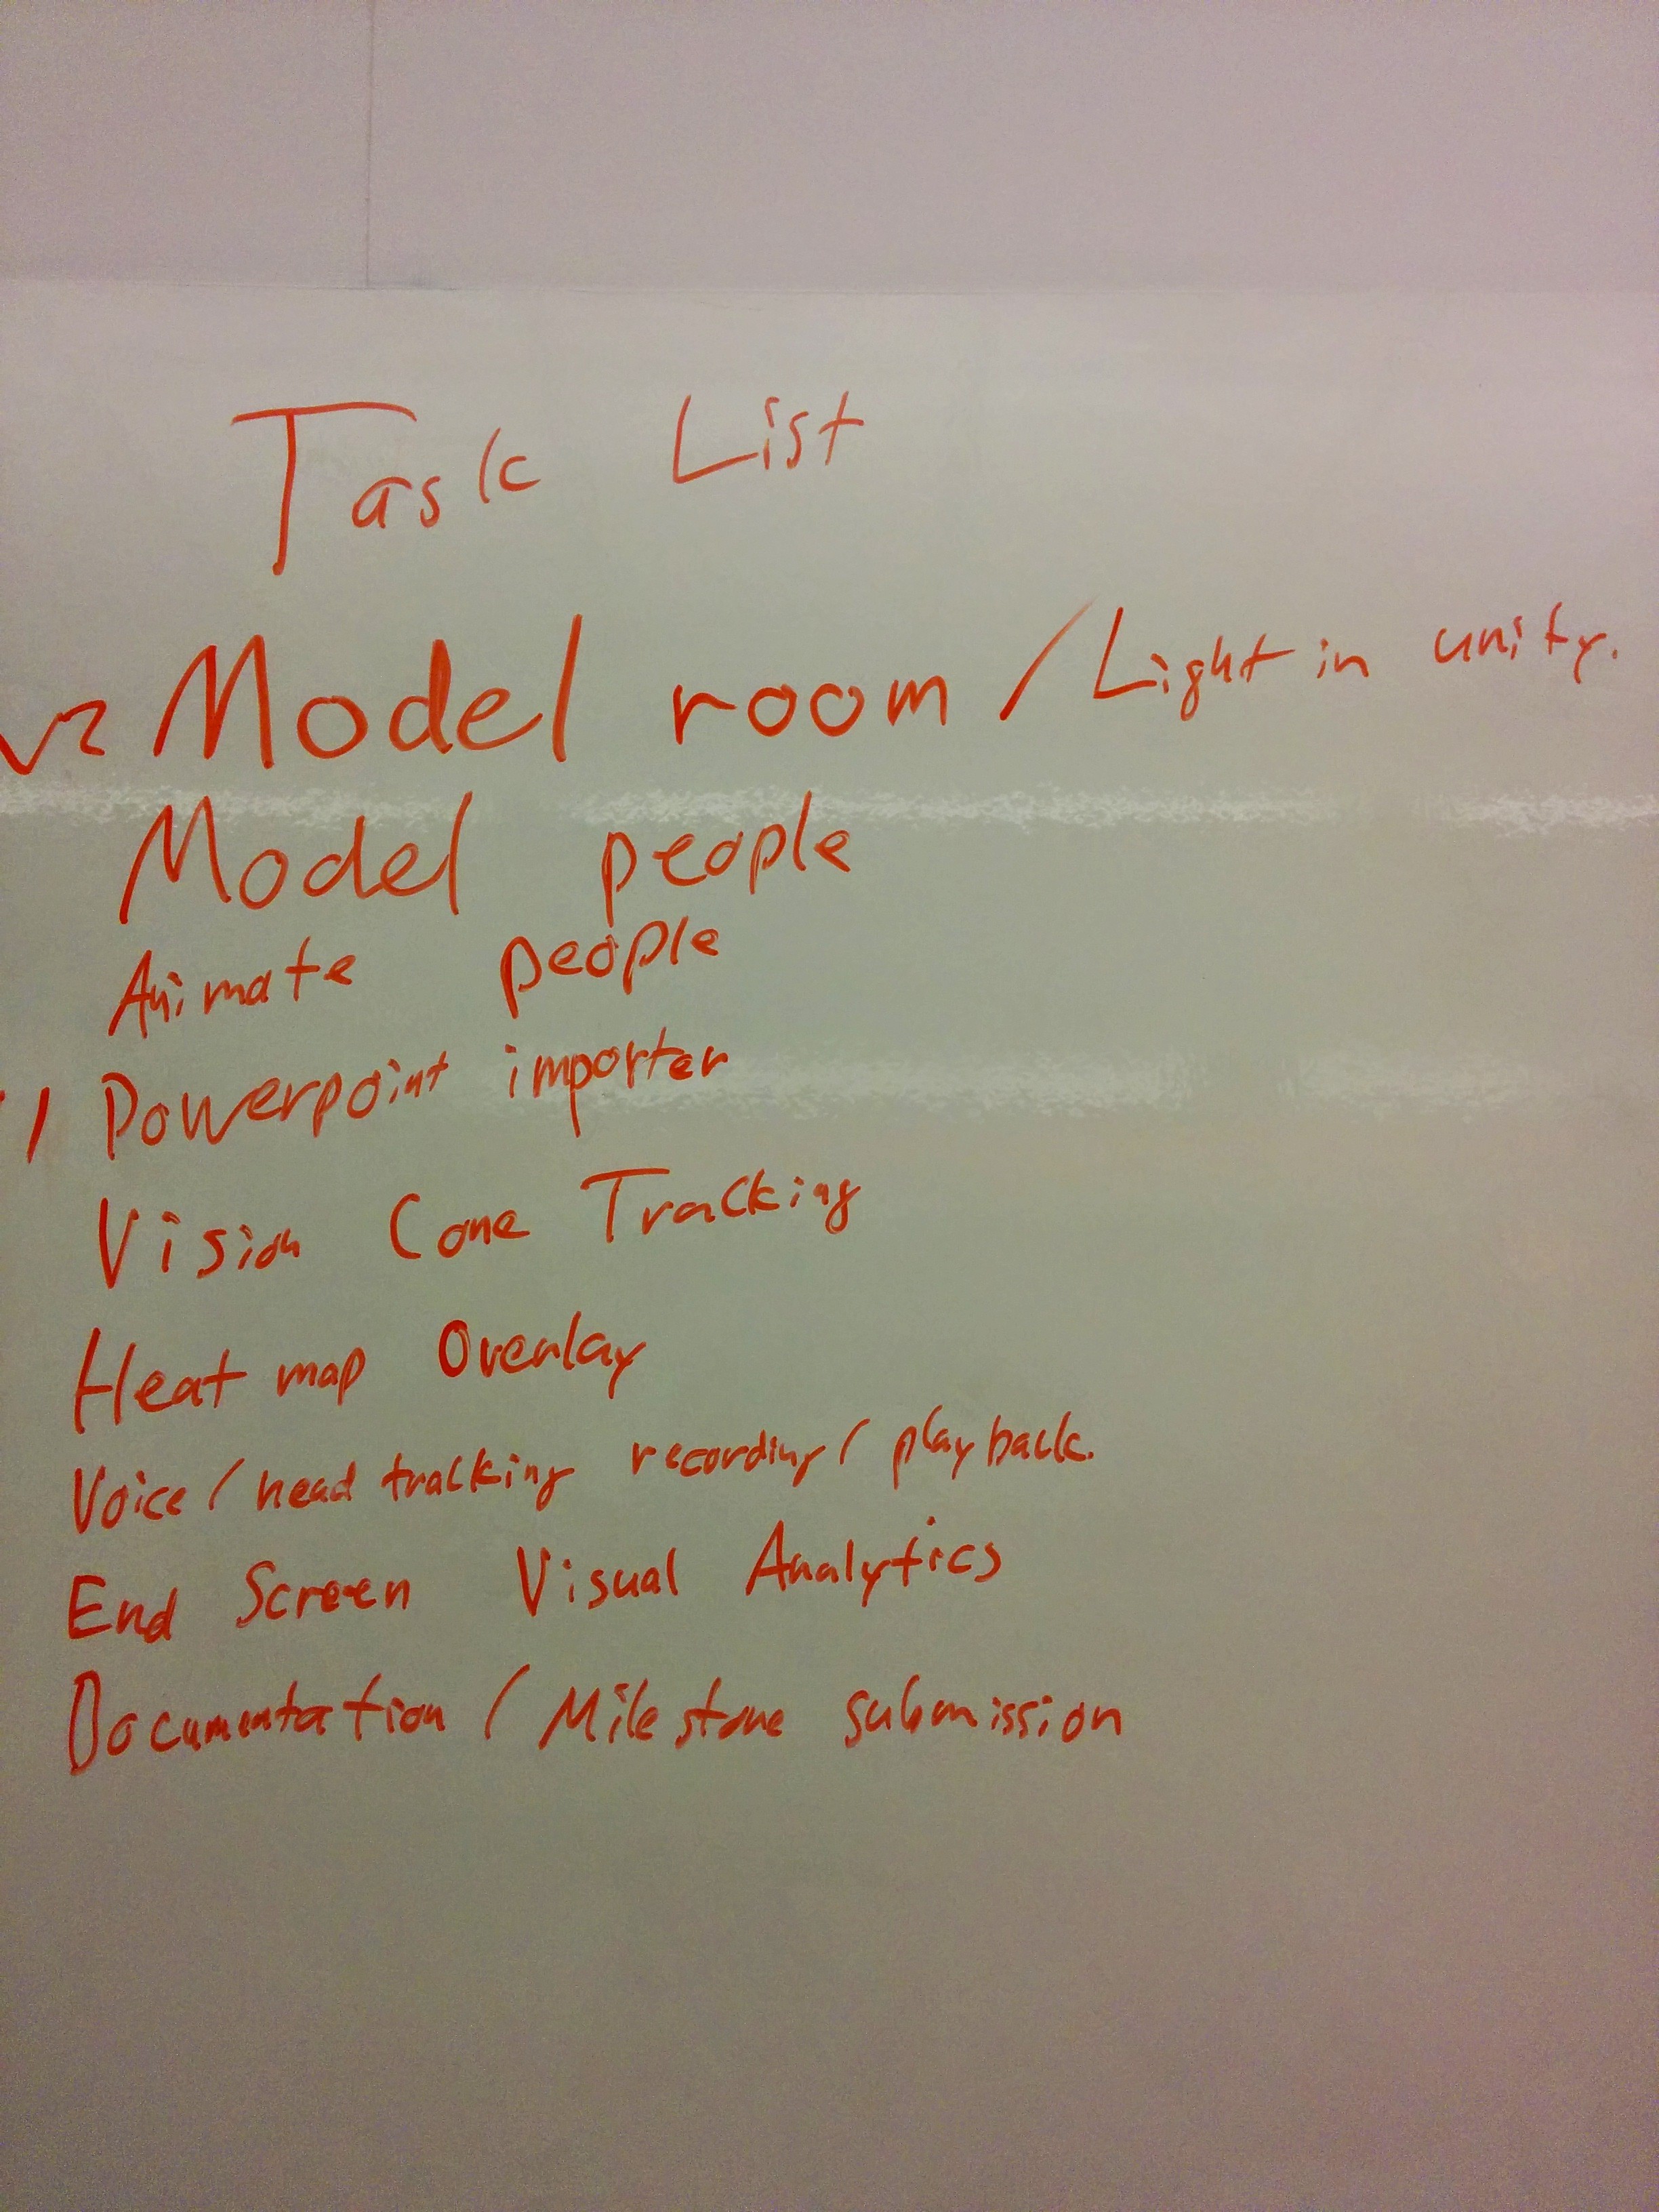 Task List
Model room / Light in unity.
Model people
Animate people
Powerpoint importer
Vision Cone Tracking
Heat map Overlay
Voice / head tracking recording / playback.
End Screen Visual Analytics
Documentation / Milestone submission